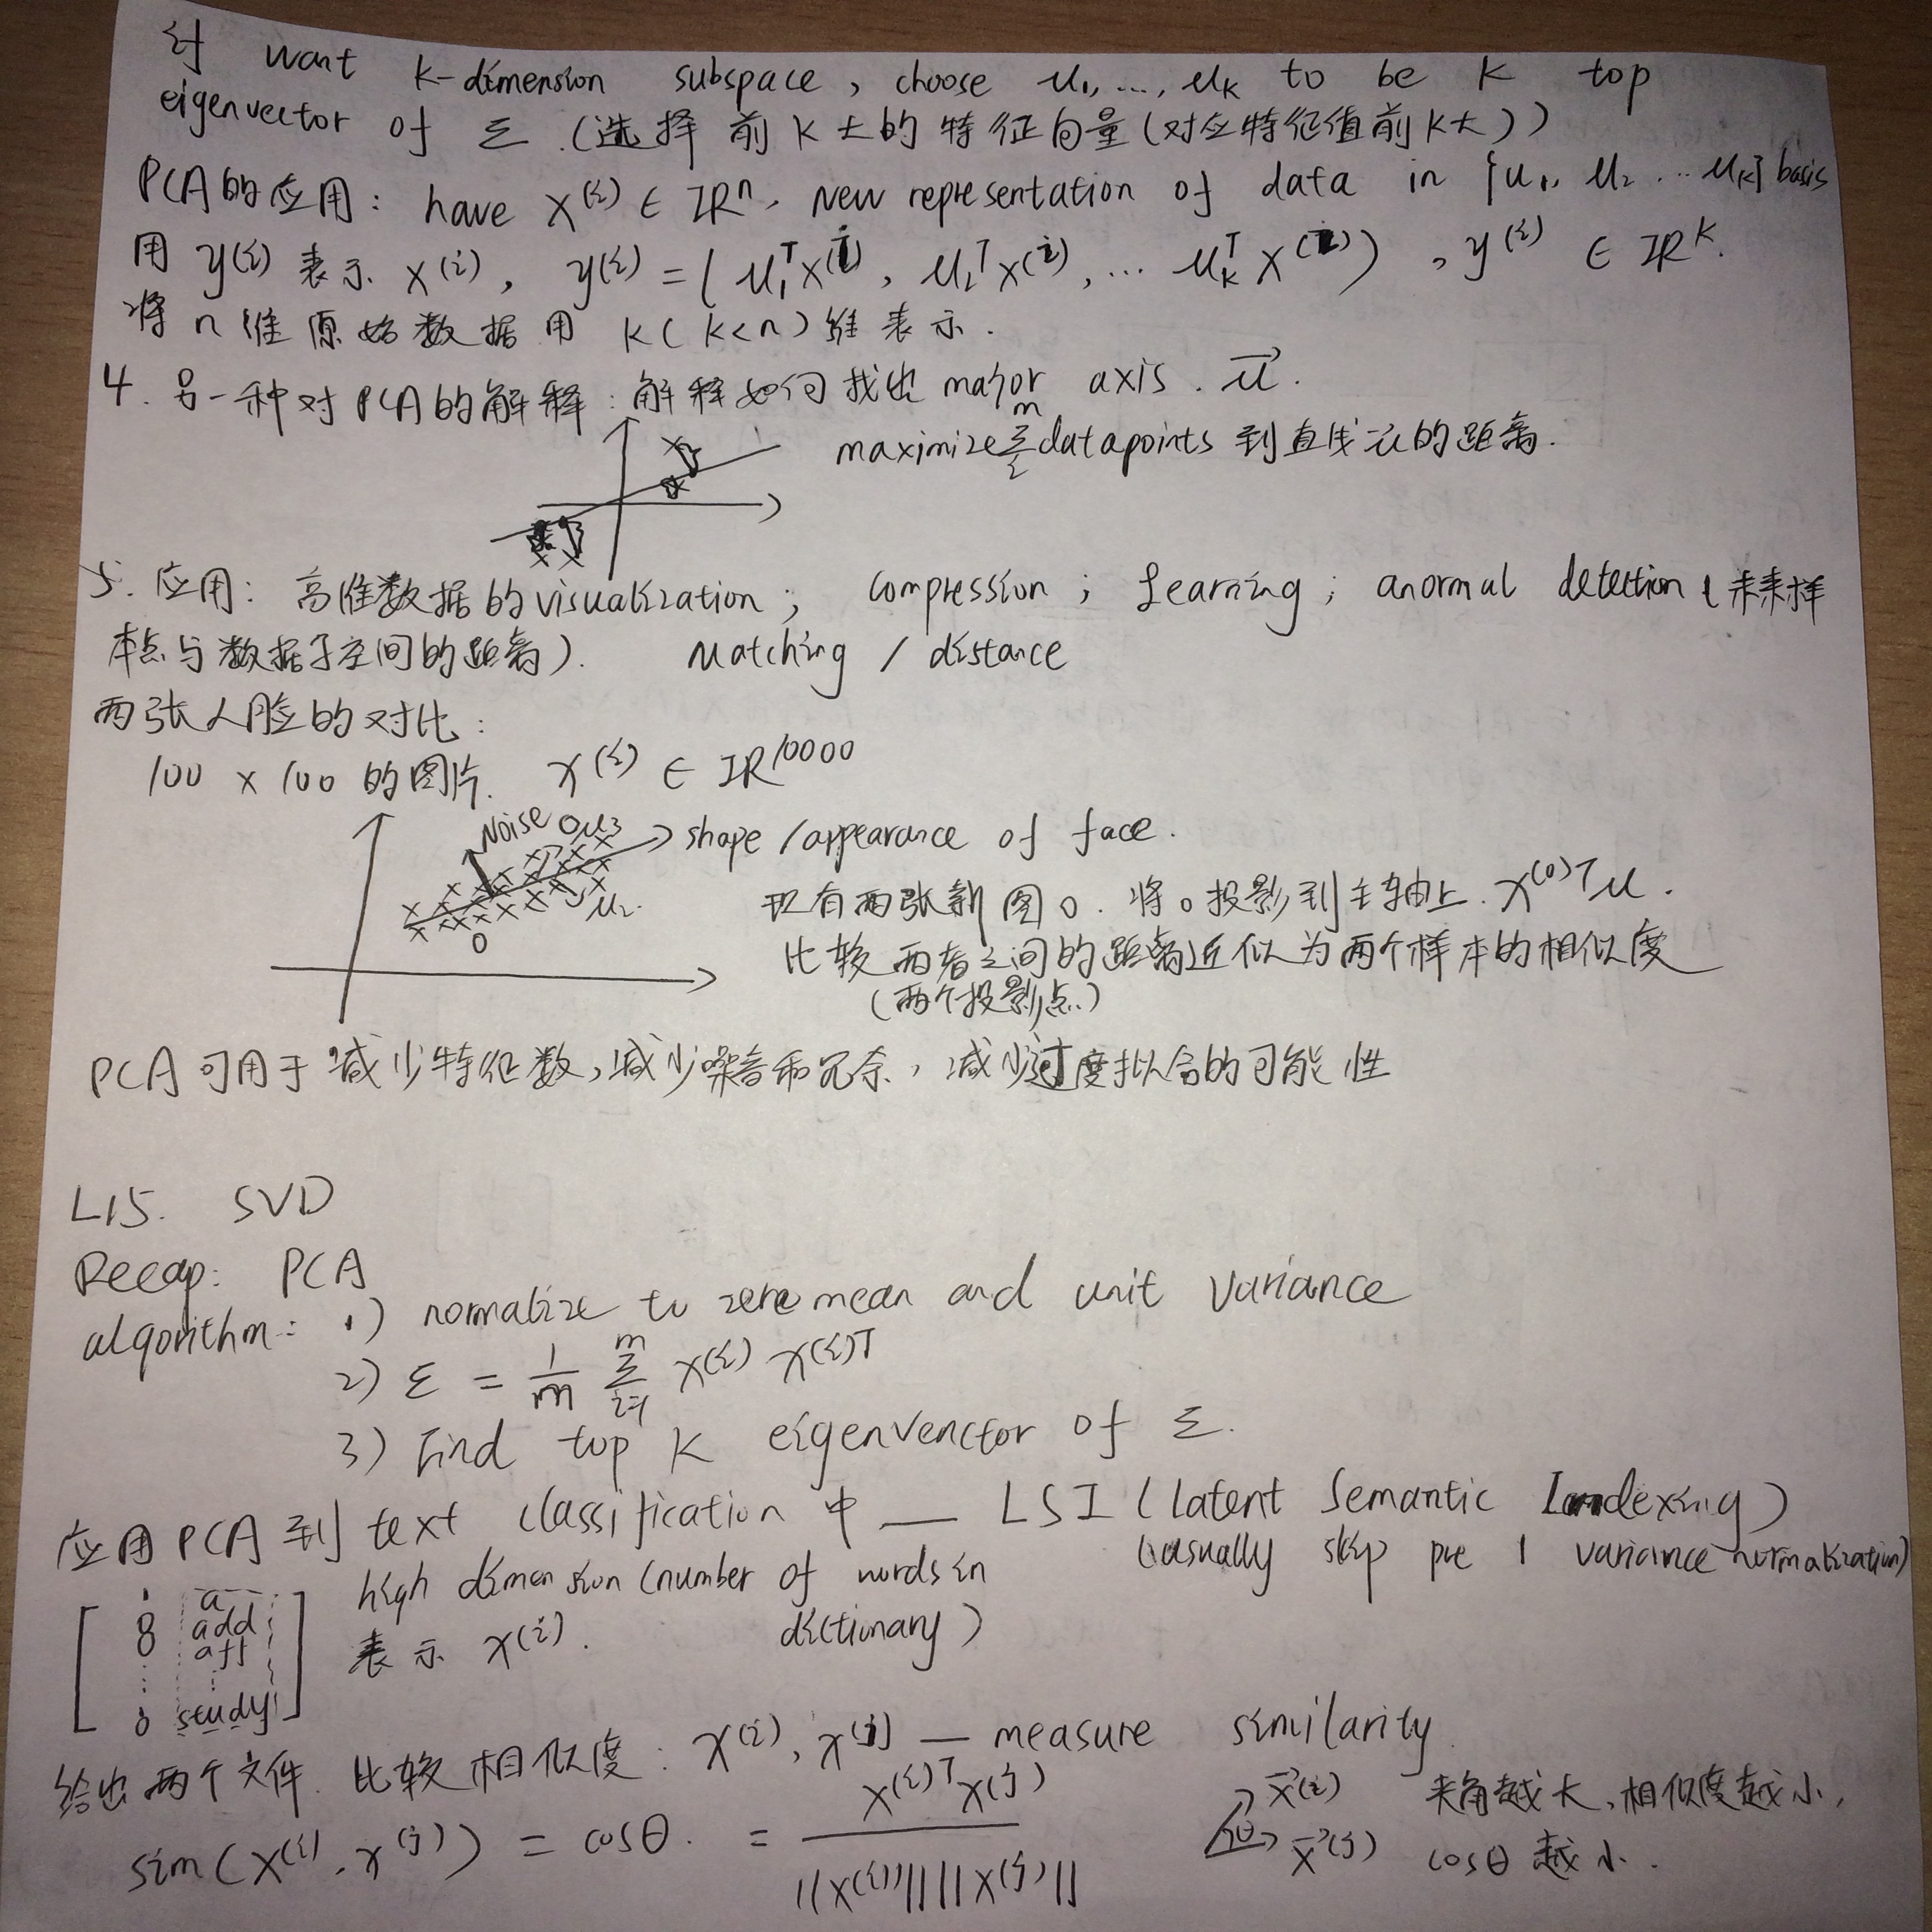 if want k-dimension subspace, choose u₁, ..., uₖ to be k top
eigenvector of Σ.(选择前k大的特征向量(对应特征值前k大))
PCA的应用: have x⁽ⁱ⁾ ∈ IRⁿ, New representation of data in {u₁, u₂ ... uₖ} basis
用 y⁽ⁱ⁾ 表示 x⁽ⁱ⁾, y⁽ⁱ⁾ = (u₁ᵀx⁽ⁱ⁾, u₂ᵀx⁽ⁱ⁾, ... uₖᵀx⁽ⁱ⁾), y⁽ⁱ⁾ ∈ IRᵏ.
将n维原始数据用 k(k<n)维表示.
4. 另一种对PCA的解释: 解释如何找出 major axis. u⃗.
maximize Σᵢᵐ datapoints 到直线u的距离.
5. 应用: 高维数据的visualization; compression; Learning; anormal detection (未来样
本点与数据子空间的距离). Matching / distance
两张人脸的对比:
100 × 100 的图片. x⁽ⁱ⁾ ∈ IR¹⁰⁰⁰⁰
Noise
u₃
shape /appearance of face.
u₂
现有两张新图o. 将o投影到主轴上. x⁽⁰⁾ᵀu.
比较两者之间的距离近似为两个样本的相似度
(两个投影点)
PCA可用于减少特征数,减少噪音和冗余,减少过度拟合的可能性
L15. SVD
Recap: PCA
algorithm: 1) normalize to zero mean and unit variance
2) Σ = 1/m Σᵢ₌₁ᵐ x⁽ⁱ⁾ x⁽ⁱ⁾ᵀ
3) Find top k eigenvenctor of Σ.
应用PCA到 text classification 中 — LSI (Latent Semantic Indexing)
(usually skip pre 1 variance normalization)
high dimension (number of words in
dictionary)
表示 x⁽ⁱ⁾.
a
add
aff
study
给出两个文件. 比较相似度: x⁽ⁱ⁾, x⁽ʲ⁾ — measure similarity.
sim(x⁽ⁱ⁾, x⁽ʲ⁾) = cosθ. = x⁽ⁱ⁾ᵀx⁽ʲ⁾ / ||x⁽ⁱ⁾|| ||x⁽ʲ⁾||
x⃗⁽ⁱ⁾ 夹角越大,相似度越小,
θ x⃗⁽ʲ⁾ cosθ越小.